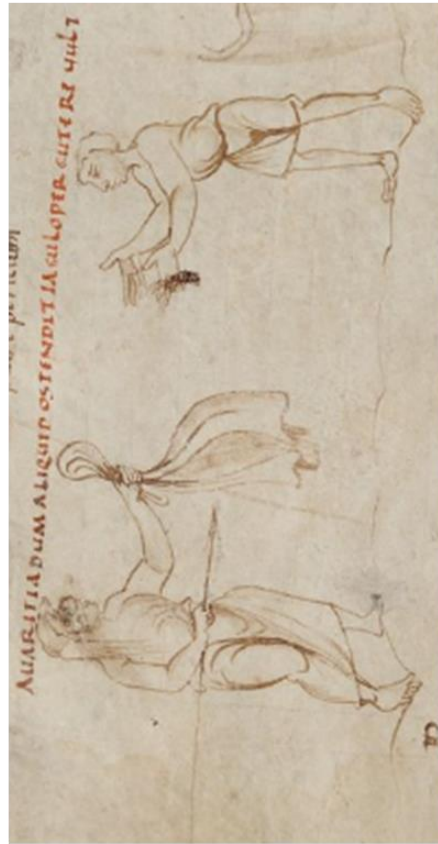 AUARITIA DUM ALIQUID OSTENDIT IACULO PERCUTERE UULT